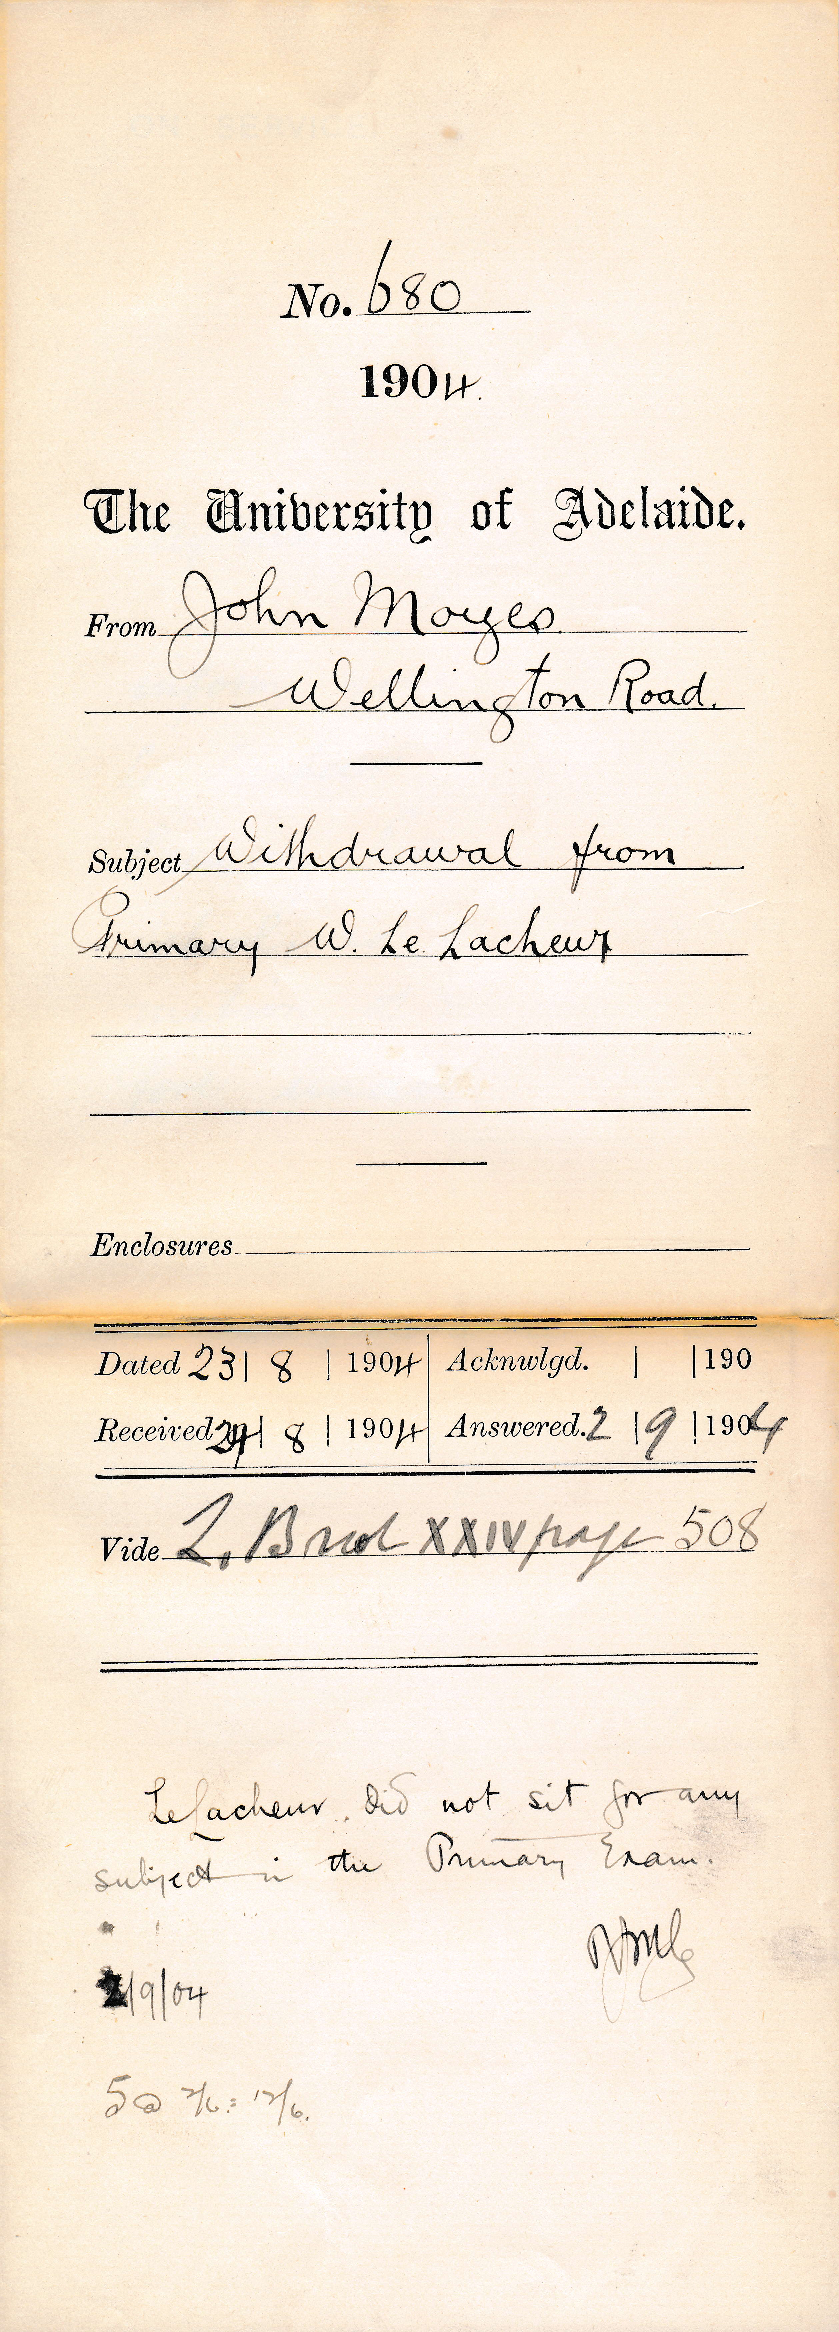 No. 680
1904.
The University of Adelaide.
From John Moyes
Wellington Road.
Subject Withdrawal from
Primary W. Le Lacheur
Enclosures
Dated 23 | 8 | 1904 Acknwlgd. | | 190
Received 24 | 8 | 1904 Answered. 2 | 9 | 1904
Vide L. Book XXIV page 508
Le Lacheur did not sit for any
subject in the Primary Exam.
2/9/04
5 @ 2/6 = 12/6.